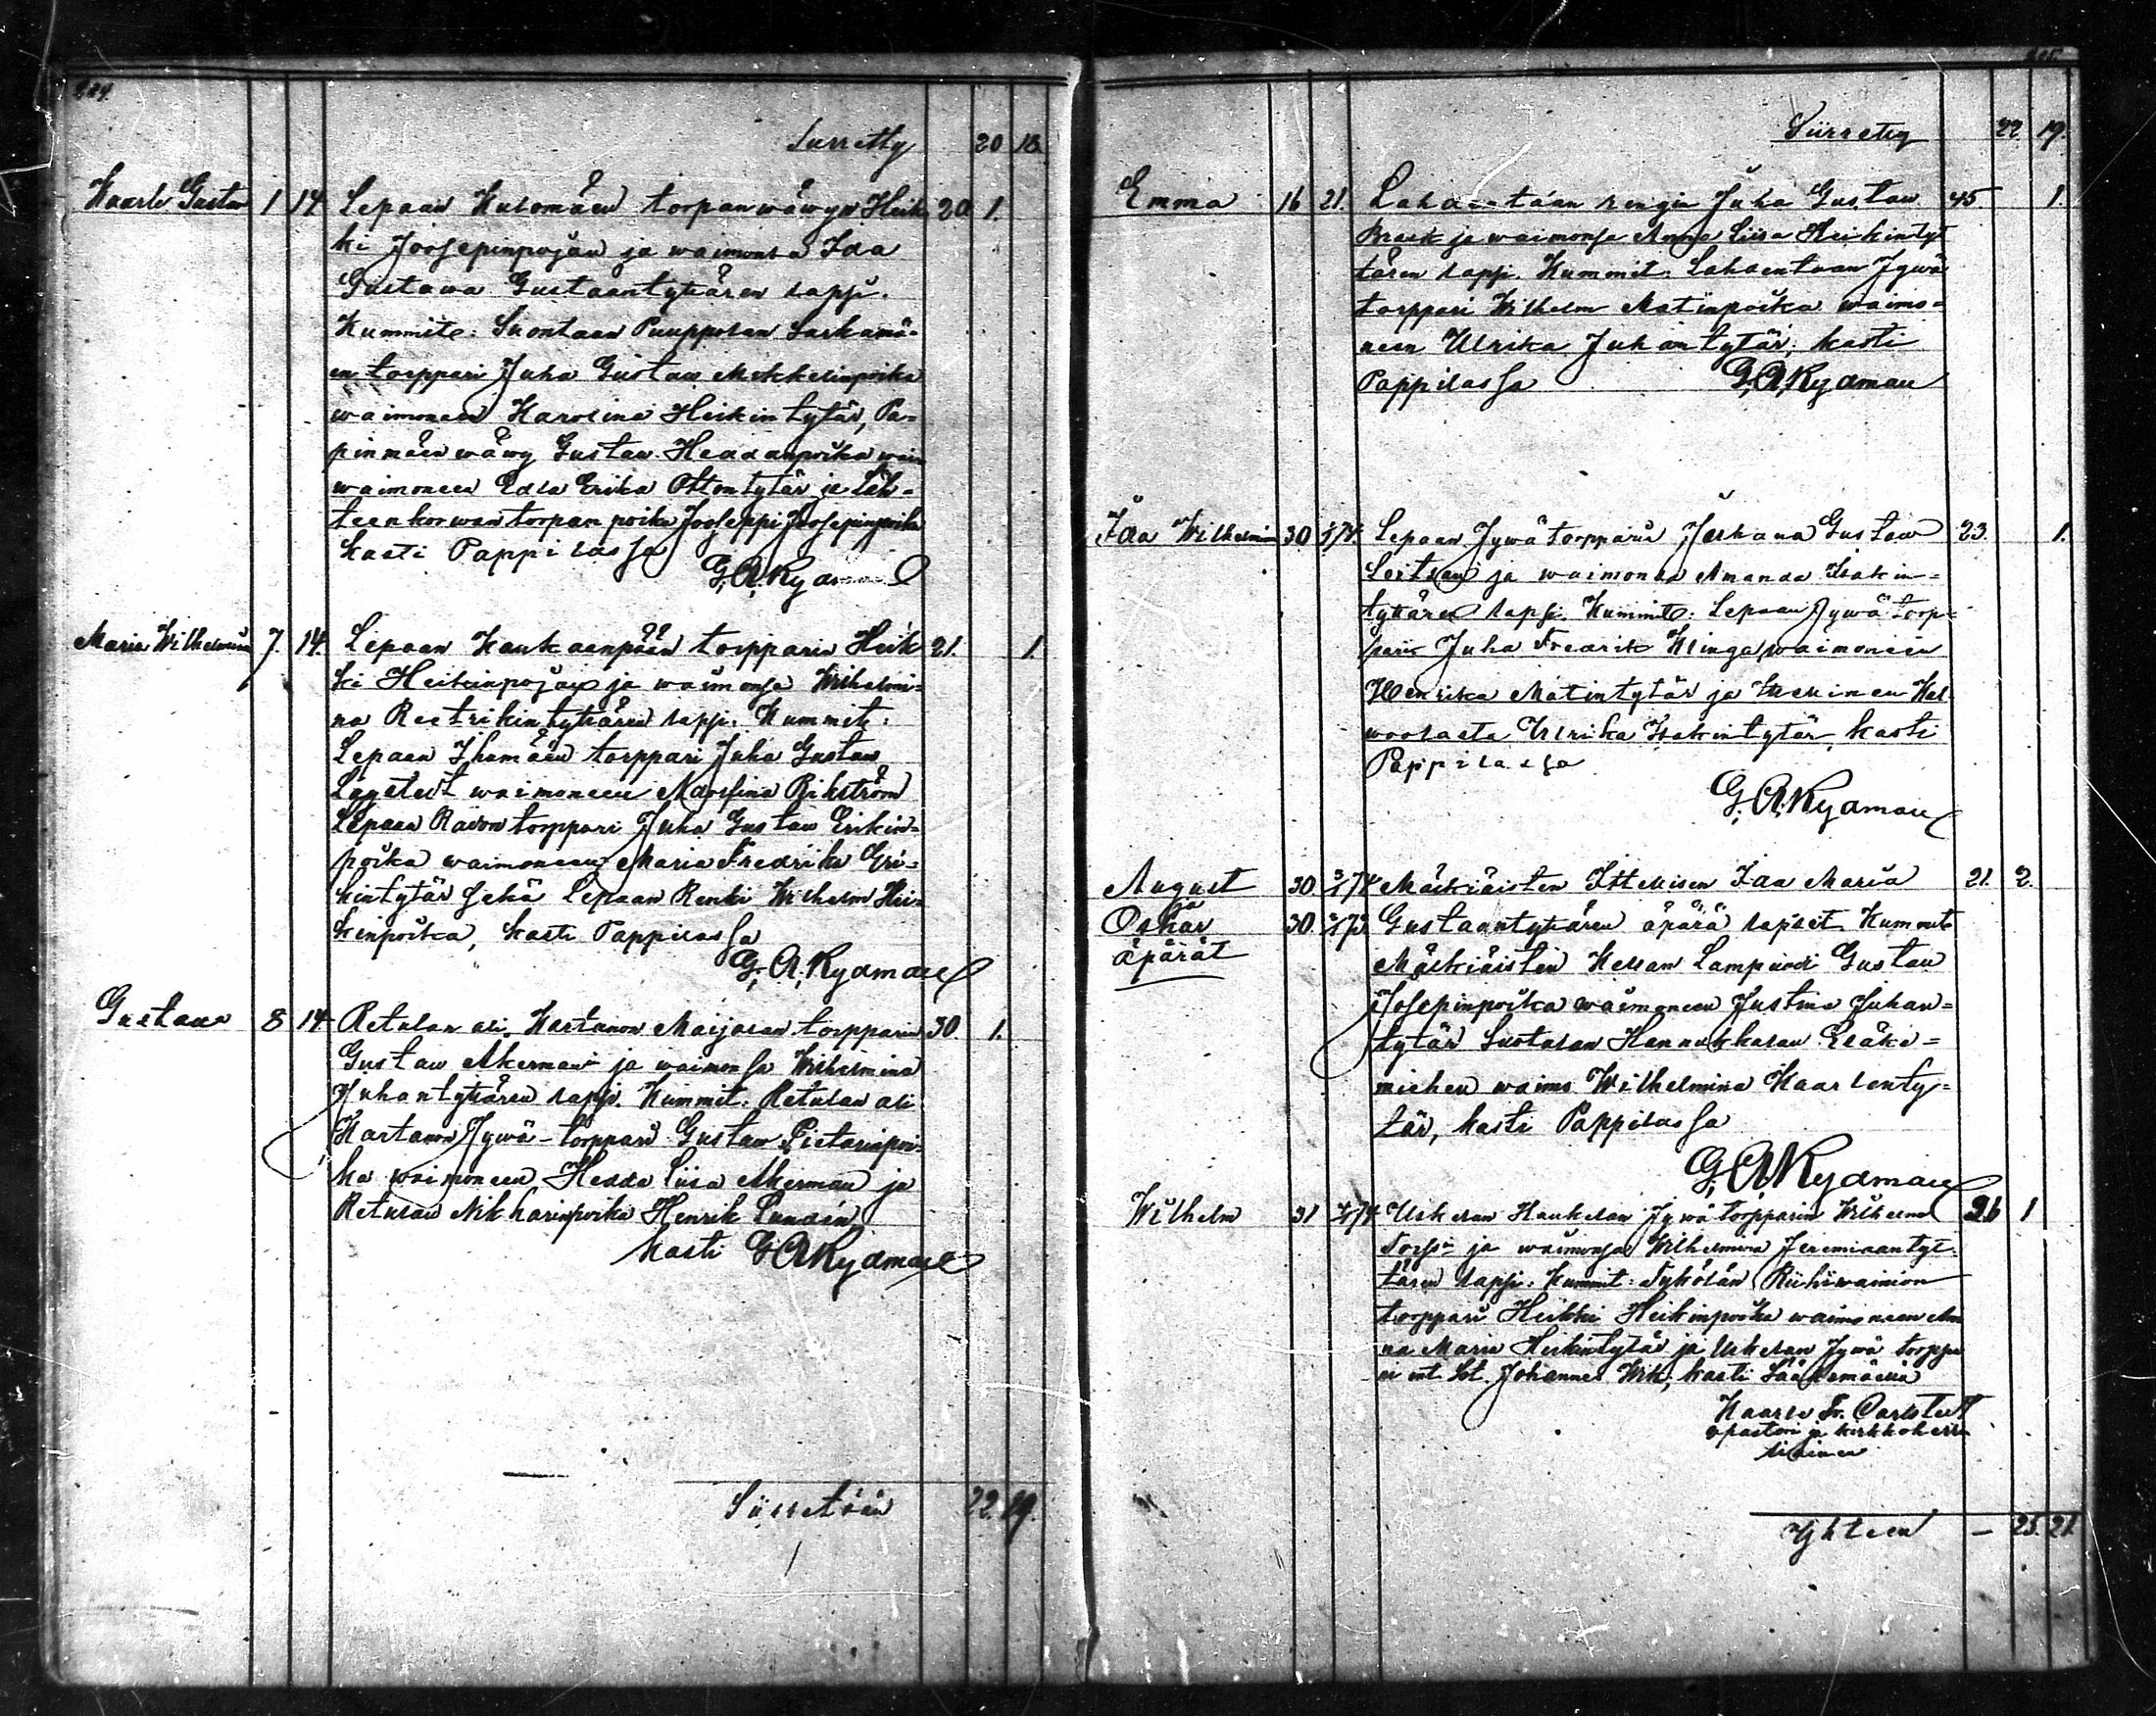 284.
Siirretty 20 18.
Kaarle Gustav 1 14 Lepaan Kulomäen torpanwäwyn Heik- 20. 1.
ki Joosepinpojan ja waimonsa Ida
Gustawa Gustaantyttären lapsi.
Kummit: Suontaan Puuppolan Sarkamä-
en torppari Juha Gustaw Mikkelinpoika
waimoneen Karolina Heikintytär, Pa-
pinmäen wäwy Gustaw Heddanpoika wai
waimoneen Edla Erika Ottontytär ja Läh-
teenkorwan torpan poika Jooseppi Joosepinpoika
kasti Pappilassa
G. A. Rydman
Maria Wilhelmiina 7. 14. Lepaan Kaukaanpään torpparin Heik- 21. 1.
ki Heikinpojan ja waimonsa Wilhelmi-
na Reetrikintyttären lapsi. Kummit:
Lepaan Ihamäen torppari Juha Gustaw
Lägstedt waimoneen Maria Rikström
Lepaan torppari Juha Gustaw Erikin-
poika waimoneen Maria Fredrika Eri-
kintytär sekä Lepaan Renki Wilhelm Hei-
kinpoika, kasti Pappilassa
G. A. Rydman
Gustawa 8 14 Retulan ali Kartanon Maijalan torpparin 30. 1.
Gustaw Akerman ja waimonsa Wilhelmina
Juhantyttären lapsi. Kummit: Retulan ali
Kartanon Jywä-torppari Gustaw Pietarinpoi-
ka waimoneen Hedda Liisa Akerman ja
Retulan Henrik Lundén,
kasti G A Rydman
Siirretään 22. 19.
285.
Siirretty 22. 19.
Emma 16 21. Lahdentaan rengin Juha Gustaw 45. 1.
ja waimonsa Anna Liisa Heikintyt
tären lapsi. Kummit: Lahdentaan Jywä
torppari Wilhelm Matinpoika waimo-
neen Ulrika Juhantytär; kasti
Pappilassa G. A. Rydman
Ida Wilhelmina 30 Lepaan Jywätorpparin Juhana Gustaw 23. 1.
ja waimonsa Amanda Isakin-
tyttären lapsi. Kummit: Lepaan Jywä torp-
pari Juha Fredrik Klinga waimoneen
Henrika Matintytär ja Kal-
woolasta Ulrika Isakintytär, kasti
Pappilassa
G. A. Rydman
August 30. Mälkiäisten Ittellisen Ida Maria 21. 2.
ja
Oskar 30. Gustaantyttären äpärä lapset. Kummit
äpärät Mälkiäisten Kellan Lampuodi Gustaw
Josepinpoika waimoneen Justina Juhan-
tytär Suotulan Hannukkalan Eläke-
miehen waimo Wilhelmina Kaarlenty-
tär, kasti Pappilassa
G. A. Rydman
Wilhelm 31 Uskelan Haukelan Jywä torpparin Wilhelm 26 1
ja waimonsa Wilhelmina Jeremiaantyt-
tären lapsi. Kummit: Riihiwainion
torppari Heikki Heikinpoika waimoneen An
na Maria Heikintytär ja Uskelan Jywä torppa
ri ent. Sot. Johannes Wik; kasti Sääksmäellä
Kaarle Fr. Carlstedt
pastori ja kirkkoherra
Yhteen – 25. 21.